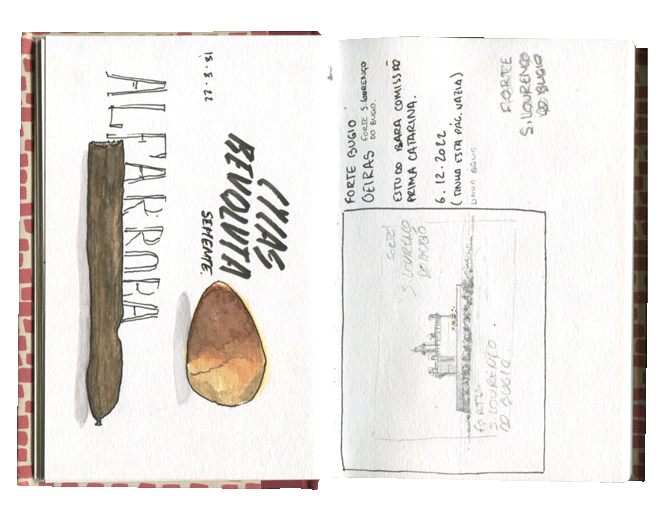 CYAS
REVOLUTA
SEMENTE.
13.8.22
ALFARROBA
FORTE BUGIO
FORTE S. LOURENÇO
OEIRAS DO BUGIO.
ESTUDO PARA COMISSÃO
PRIMA CATARINA.
6.12.2022
(TINHA ESTA PÁG. VAZIA)
FORTE
S. LOURENÇO
DO BUGIO
FORTE
S. LOURENÇO
DO BUGIO
FORTE
S. LOURENÇO
DO BUGIO.